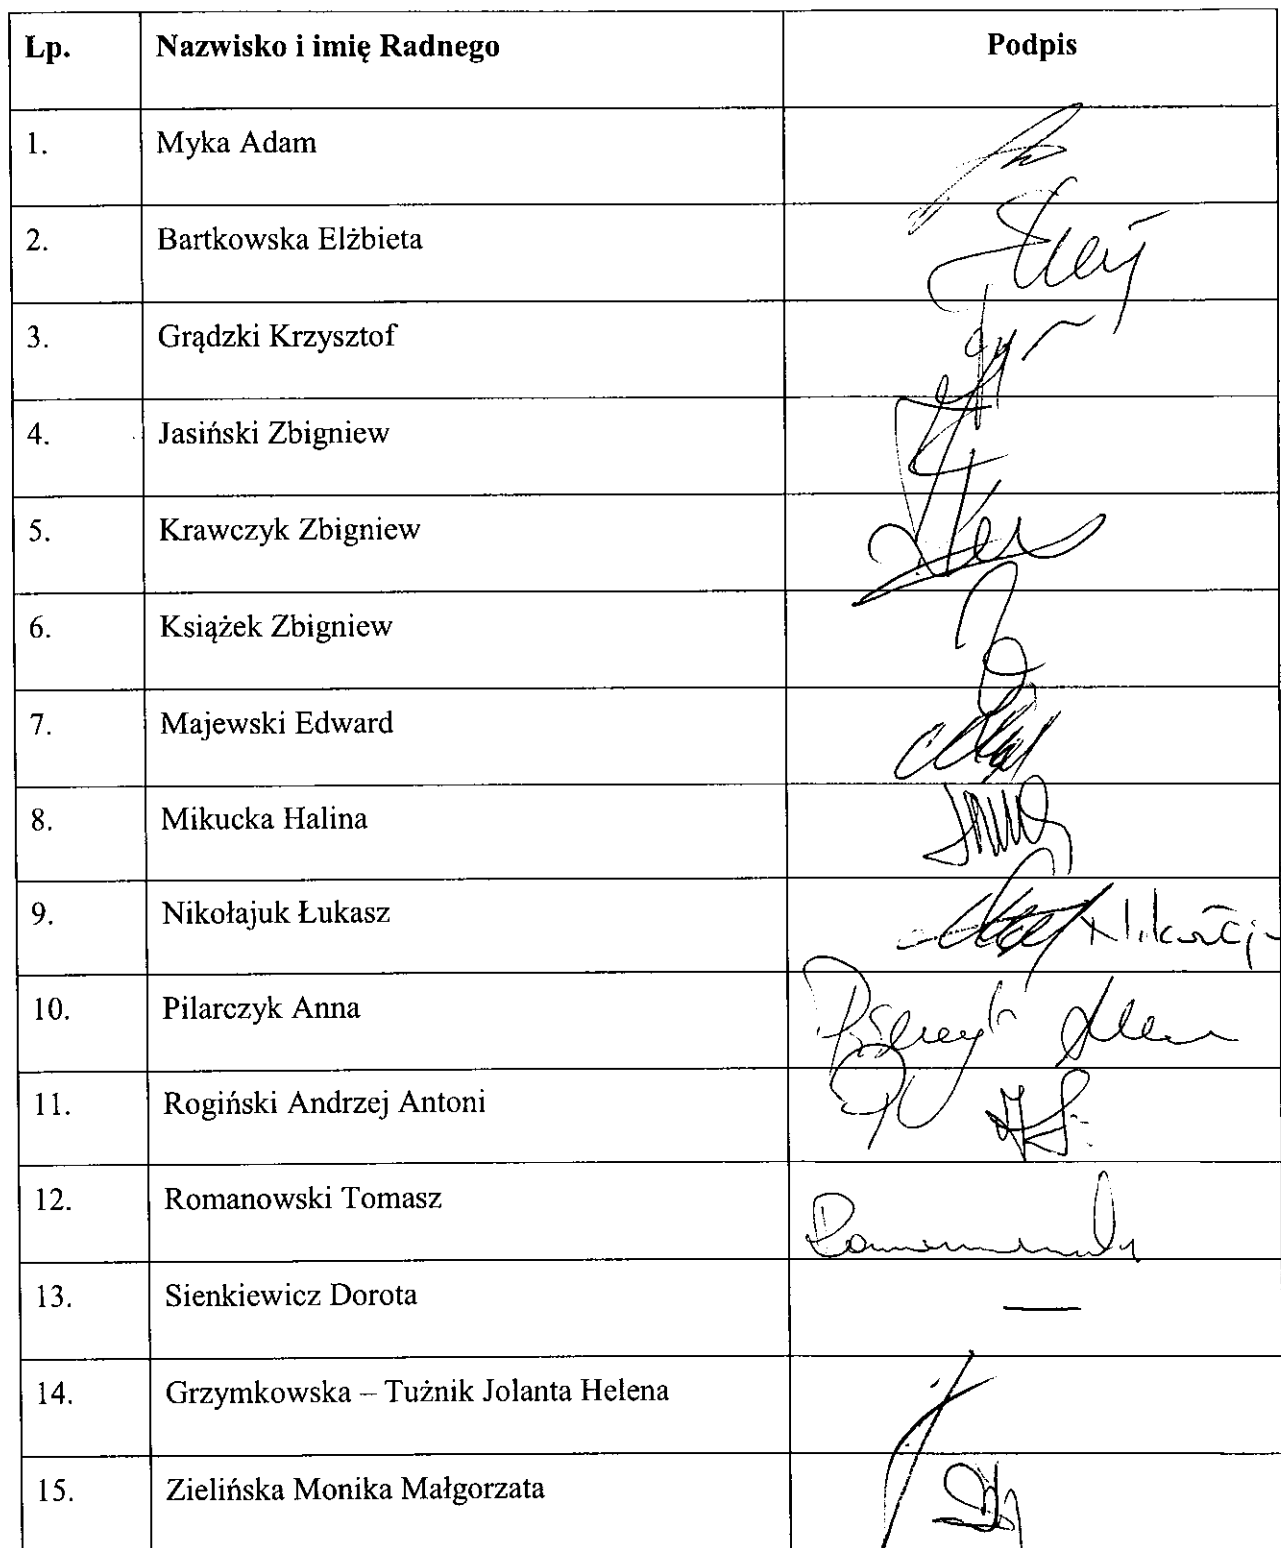 Lp. Nazwisko i imię Radnego Podpis
1. Myka Adam
2. Bartkowska Elżbieta
3. Grądzki Krzysztof
4. Jasiński Zbigniew
5. Krawczyk Zbigniew
6. Książek Zbigniew
7. Majewski Edward
8. Mikucka Halina
9. Nikołajuk Łukasz
10. Pilarczyk Anna
11. Rogiński Andrzej Antoni
12. Romanowski Tomasz
13. Sienkiewicz Dorota —
14. Grzymkowska – Tużnik Jolanta Helena
15. Zielińska Monika Małgorzata